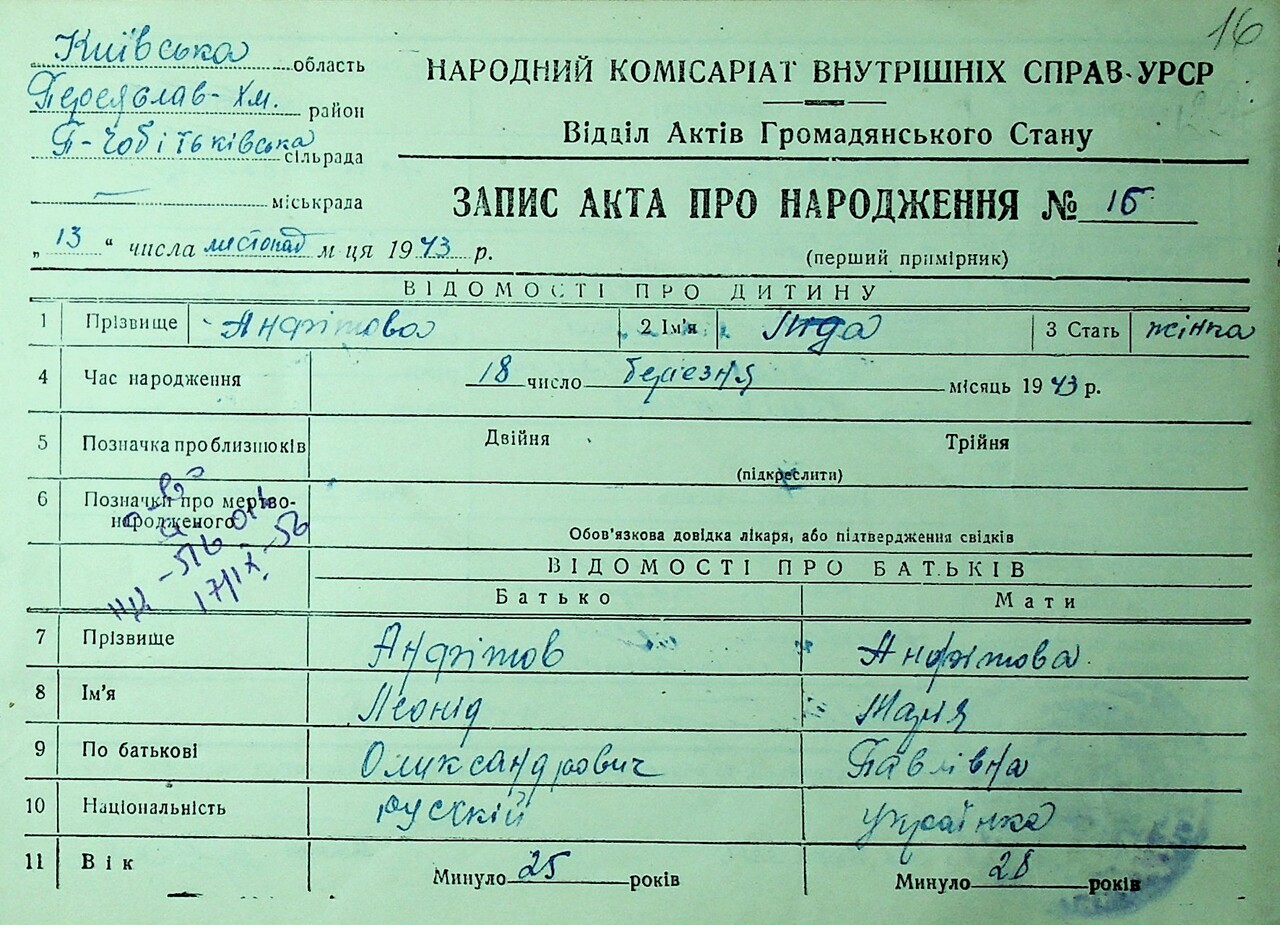 16
Київська область
Переяслав-Хм. район
П-Чобітьківська сільрада
— міськрада
НАРОДНИЙ КОМІСАРІАТ ВНУТРІШНІХ СПРАВ УРСР
Відділ Актів Громадянського Стану
ЗАПИС АКТА ПРО НАРОДЖЕННЯ № 16
„ 13 " числа листопад м ця 1943 р.
(перший примірник)
ВІДОМОСТІ ПРО ДИТИНУ
1 Прізвище Анфітова 2 Ім'я Ліда 3 Стать жінка
4 Час народження 18 число березня місяць 1943 р.
5 Позначка про близнюків Двійня Трійня
(підкреслити)
6 Позначки про мертво-
народженого
Обов'язкова довідка лікаря, або підтвердження свідків
17/IX-56
ВІДОМОСТІ ПРО БАТЬКІВ
Батько Мати
7 Прізвище Анфітов Анфітова
8 Ім'я Леонід Марія
9 По батькові Олександрович Павлівна
10 Національність русский українка
11 Вік Минуло 25 років Минуло 28 років